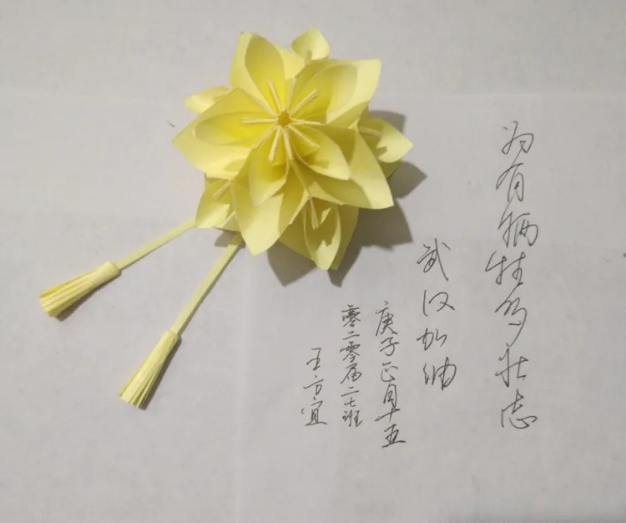 为有牺牲多壮志
武汉加油
庚子正月十五
零二零届二七班
王方宜